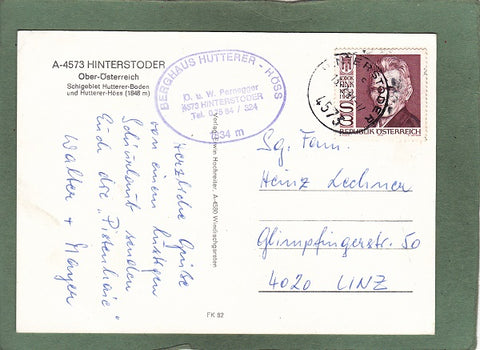 A-4573 HINTERSTODER
Ober-Österreich
Schigebiet Hutterer-Boden
und Hutterer-Höss (1848 m)
BERGHAUS HUTTERER - HÖSS
D. u. W. Pernegger
4573 HINTERSTODER
Tel. 0 75 64 / 324
HINTERSTODER
4573
REPUBLIK ÖSTERREICH
Herzliche Grüße
von einem lustigen
Schiurlaub senden
Euch die „Pistenhaie"
Walter +
Verlag Erwin Hochreiter, A-4580 Windischgarsten
FK 82
Sg. Fam.
Heinz Lechner
Glimpfingerstr. 50
4020 LINZ